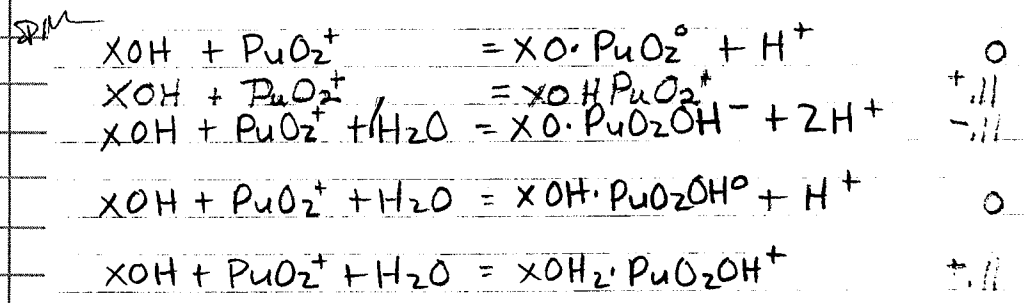 XOH + PuO₂⁺ = XO·PuO₂⁰ + H⁺ 0
XOH + PuO₂⁺ = XOHPuO₂⁺ +.11
XOH + PuO₂⁺ + H₂O = XO·PuO₂OH⁻ + 2H⁺ -.11
XOH + PuO₂⁺ + H₂O = XOH·PuO₂OH⁰ + H⁺ 0
XOH + PuO₂⁺ + H₂O = XOH₂·PuO₂OH⁺ +.11